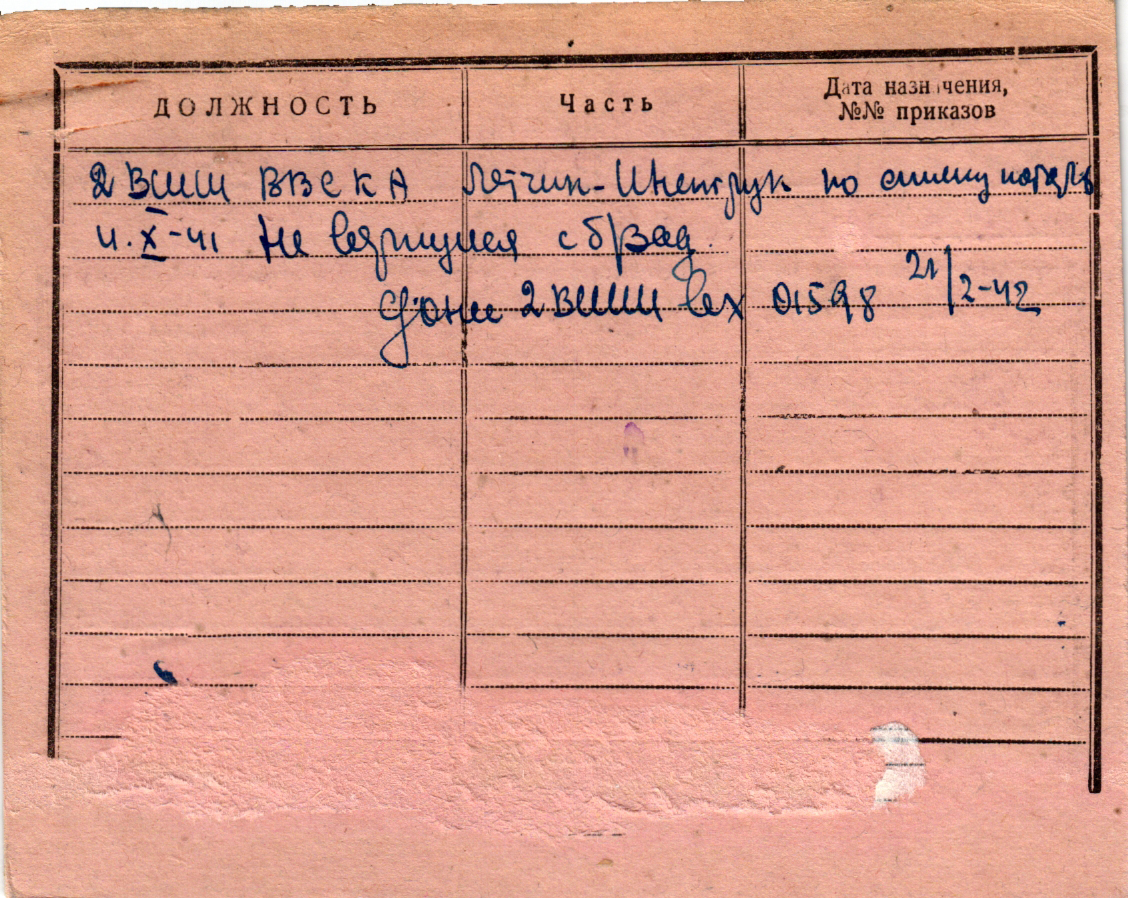 ДОЛЖНОСТЬ
Часть
Дата назначения,
№№ приказов
2 ВШШ ВВС КА Летчик-Инструк по
4.X-41 Не вернулся с б/зад.
Донес 2 ВШШ вх 01598 21/2-42